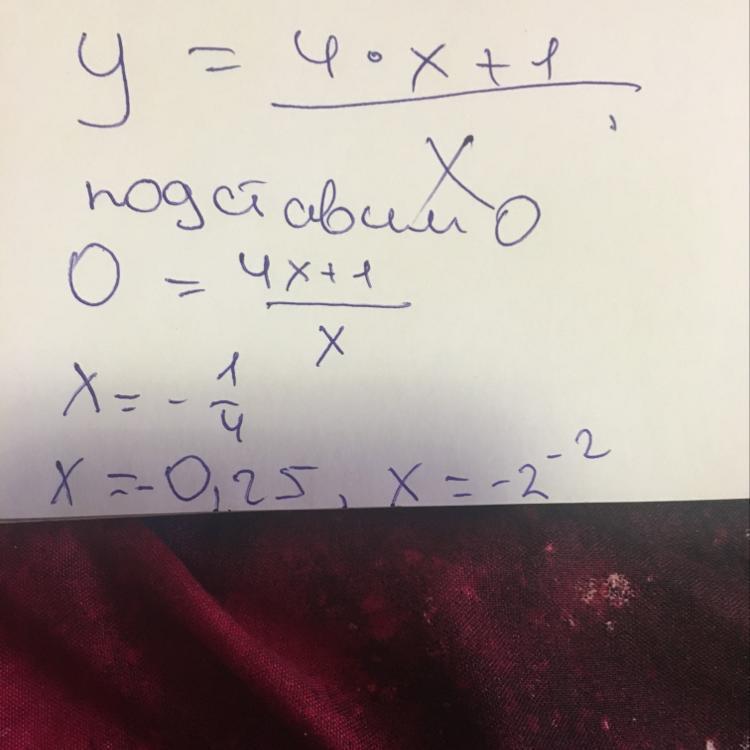 y = 4·x+1
x ,
подставим 0
0 = 4x+1
x
x = - 1/4
x = -0,25, x = -2^-2